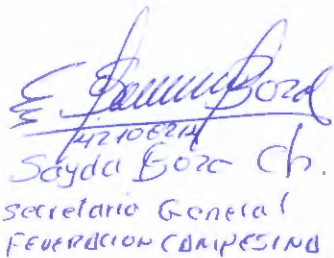 Boza
Sayda Boza Ch.
Secretaria General
FEDERACION CAMPESINA